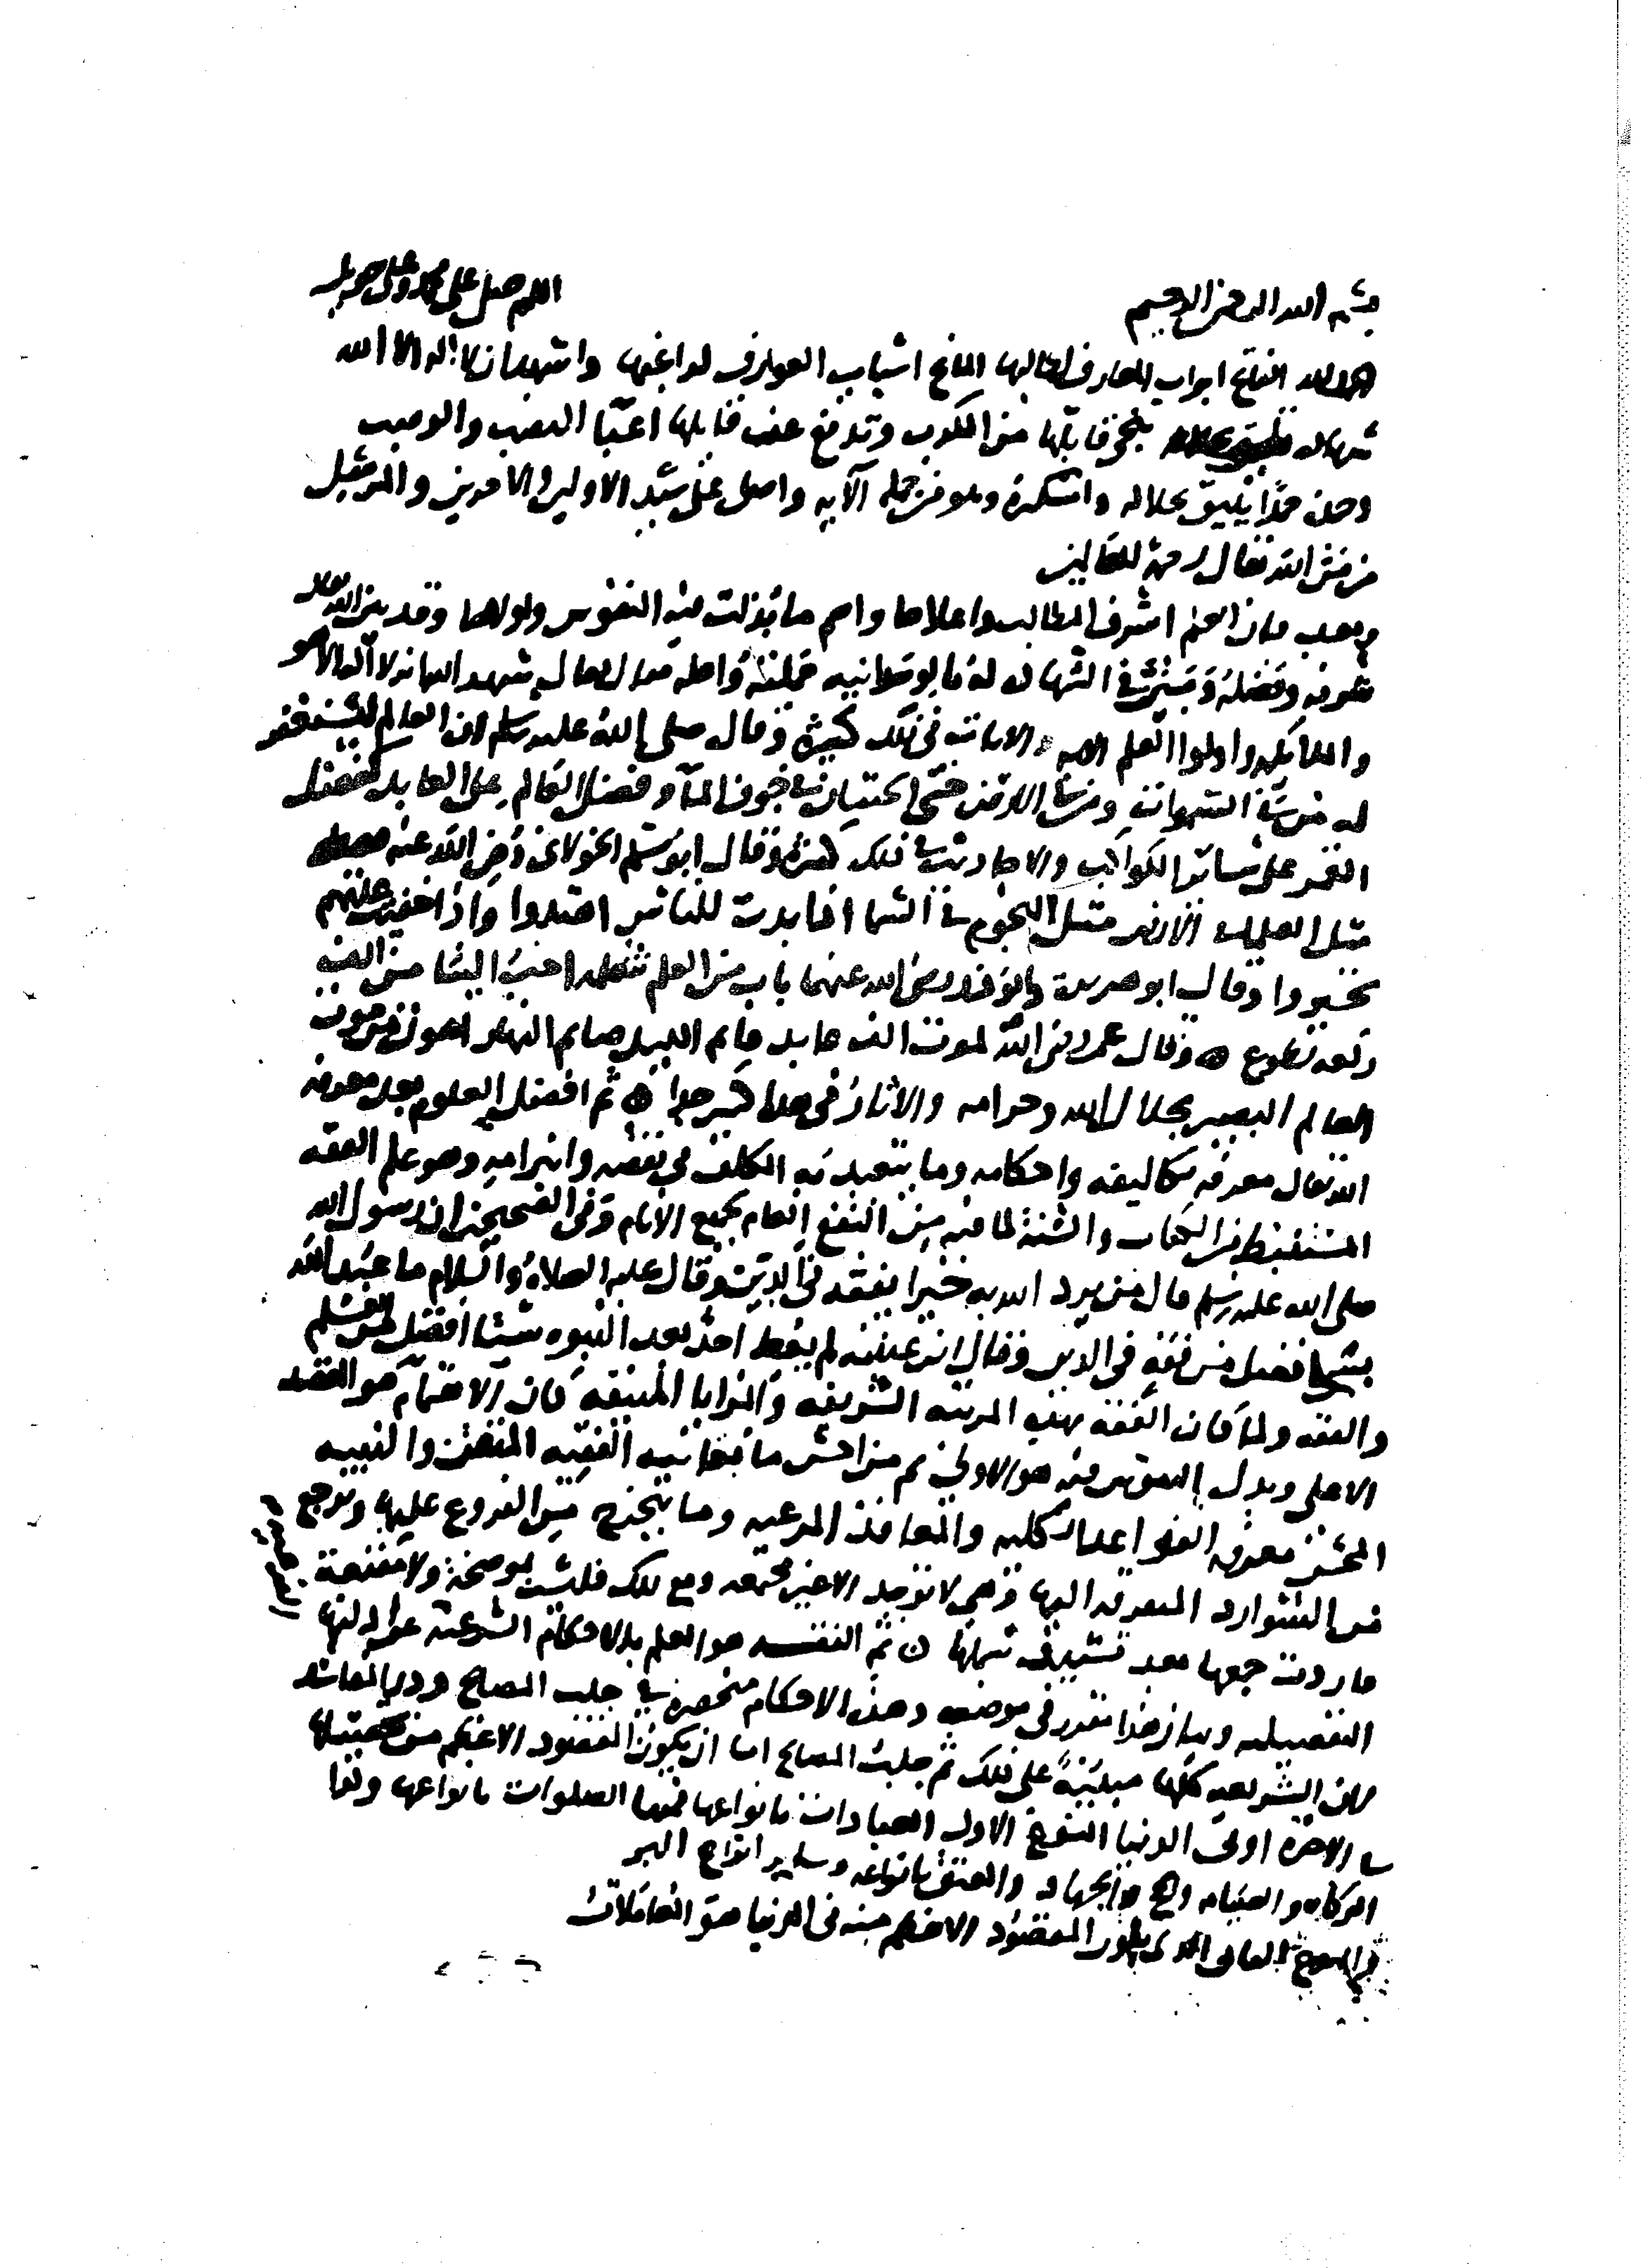 بسم الله الرحمن الرحيم اللهم صل على محمد وعلى
الحمد لله الفاتح ابواب المعارف لطالبها المانح اسباب العوارف لراغبها واشهد ان لا اله الا الله
شهادة تنجي قايلها من الكروب وتدفع عن قايلها اعبا النصب والوصب
وحده حمدا يليق بجلاله واشكره وهو من جملة آلايه واصلي على سيد الاولين والاخرين والمرسل
من الله تعالى رحمة للعالمين
وبعد فان العلم اشرف المطالب واعلاها واهم ما بذلت فيه النفوس قواها وقد بين الله تعالى
شرفه وفضله في الشهادة له بالوحدانيه لملائكته واهله فقال تعالى شهد الله انه لا اله الا هو
والملايكه واولوا العلم الايه والايات في ذلك كثيرة وقال صلى الله عليه وسلم ان العالم ليستغفر
له من في السموات ومن في الارض حتى الحيتان في جوف الما وفضل العالم على العابد كفضل
القمر على سائر الكواكب والاحاديث في ذلك كثيرة وقال ابو مسلم الخولاني رضي الله عنه
مثل العلما في الارض مثل النجوم في السما اذا بدت للناس اهتدوا واذا خفيت عليهم
تحيروا وقال ابو هريرة وابو ذر رضي الله عنهما باب من العلم نتعلمه احب الينا من الف
ركعه تطوع وقال عمر رضي الله لموت الف عابد قايم الليل صايم النهار اهون من موت
العالم البصير بحلال الله وحرامه والاثار في هذا كثير جدا ثم افضل العلوم بعد معرفة
الله تعالى معرفة تكاليفه واحكامه وما يتعبد به المكلف في نقضه وابرامه وهو علم الفقه
المستنبط من الكتاب والسنة لما فيه من النفع العام لجميع الانام وفي الصحيحين ان رسول الله
صلى الله عليه وسلم قال من يرد الله به خيرا يفقهه في الدين وقال عليه الصلاة والسلام ما عبد الله
بشي افضل من فقه في الدين وقال ابن عيينه لم يعط احد بعد النبوه شيئا افضل من العلم
والفقه ولما كان الفقه بهذه المرتبه الشريفه والمزايا المنيفه كان الاهتمام هو القصد
الاعلى وبذل النفوس فيه هو الاولى ثم من احسن ما يعانيه الفقيه المتقن والنبيه
المحسن معرفة القواعد الكليه والمآخذ المرعيه وما يتخرج من الفروع عليها ويرجع
من الشوارد المتفرقه اليها وهي لا توجد الا غير مجتمعه ومع ذلك فليست بموضحة ولا مقنعة
فاردت جمعها بعد تشتيت شملها ثم الفقه هو العلم بالاحكام الشرعية عن ادلتها
التفصيليه وبيان هذا مقرر في موضعه وهذه الاحكام منحصره في جلب المصالح ودرء المفاسد
فان الشريعة كلها مبنية على ذلك ثم جلب المصالح اما ان يكون المقصود الاعظم من
في الاخرة او في الدنيا النوع الاول العبادات بانواعها فمنها الصلوات بانواعها وكذا
الزكاه والصيام والحج والجهاد والعتق بانواعه وساير انواع البر
النوع الثاني الذي يكون المقصود الاعظم منه في الدنيا هو المعاملات